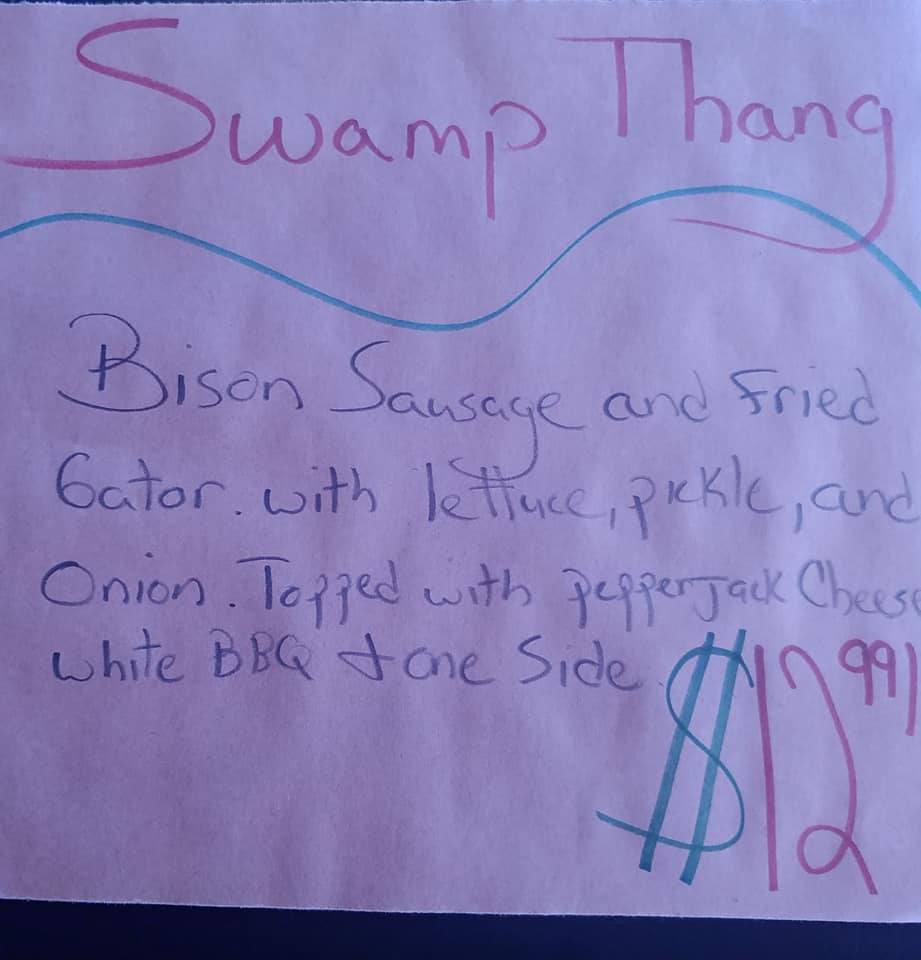 Swamp Thang
Bison Sausage and Fried
Gator. with lettuce, pickle, and
Onion. Topped with pepperjack Cheese
white BBQ + one Side.
$12.99